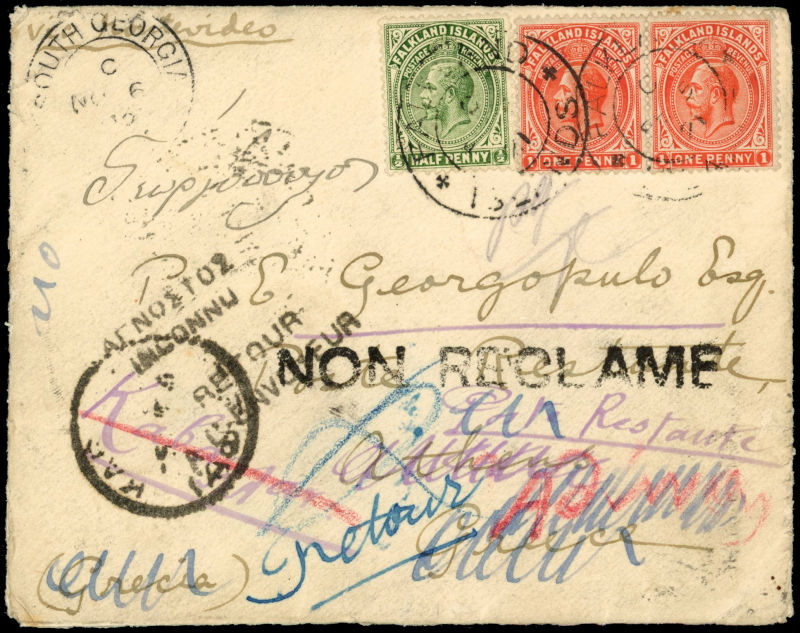 via Montevideo
SOUTH GEORGIA
C
NO 6
FALKLAND ISLANDS
POSTAGE REVENUE
½ HALFPENNY ½
FALKLAND ISLANDS
POSTAGE REVENUE
1 ONE PENNY 1
FALKLAND ISLANDS
POSTAGE REVENUE
1 ONE PENNY 1
Γεωργόπουλος
210
P. E. Georgopulo Esq.
ΑΓΝΟΣΤΟΣ
INCONNU
RETOUR
A L'ENVOYEUR
NON RECLAME
Poste Restante,
Poste Restante
Athens
retour
Greece
(Grecia)